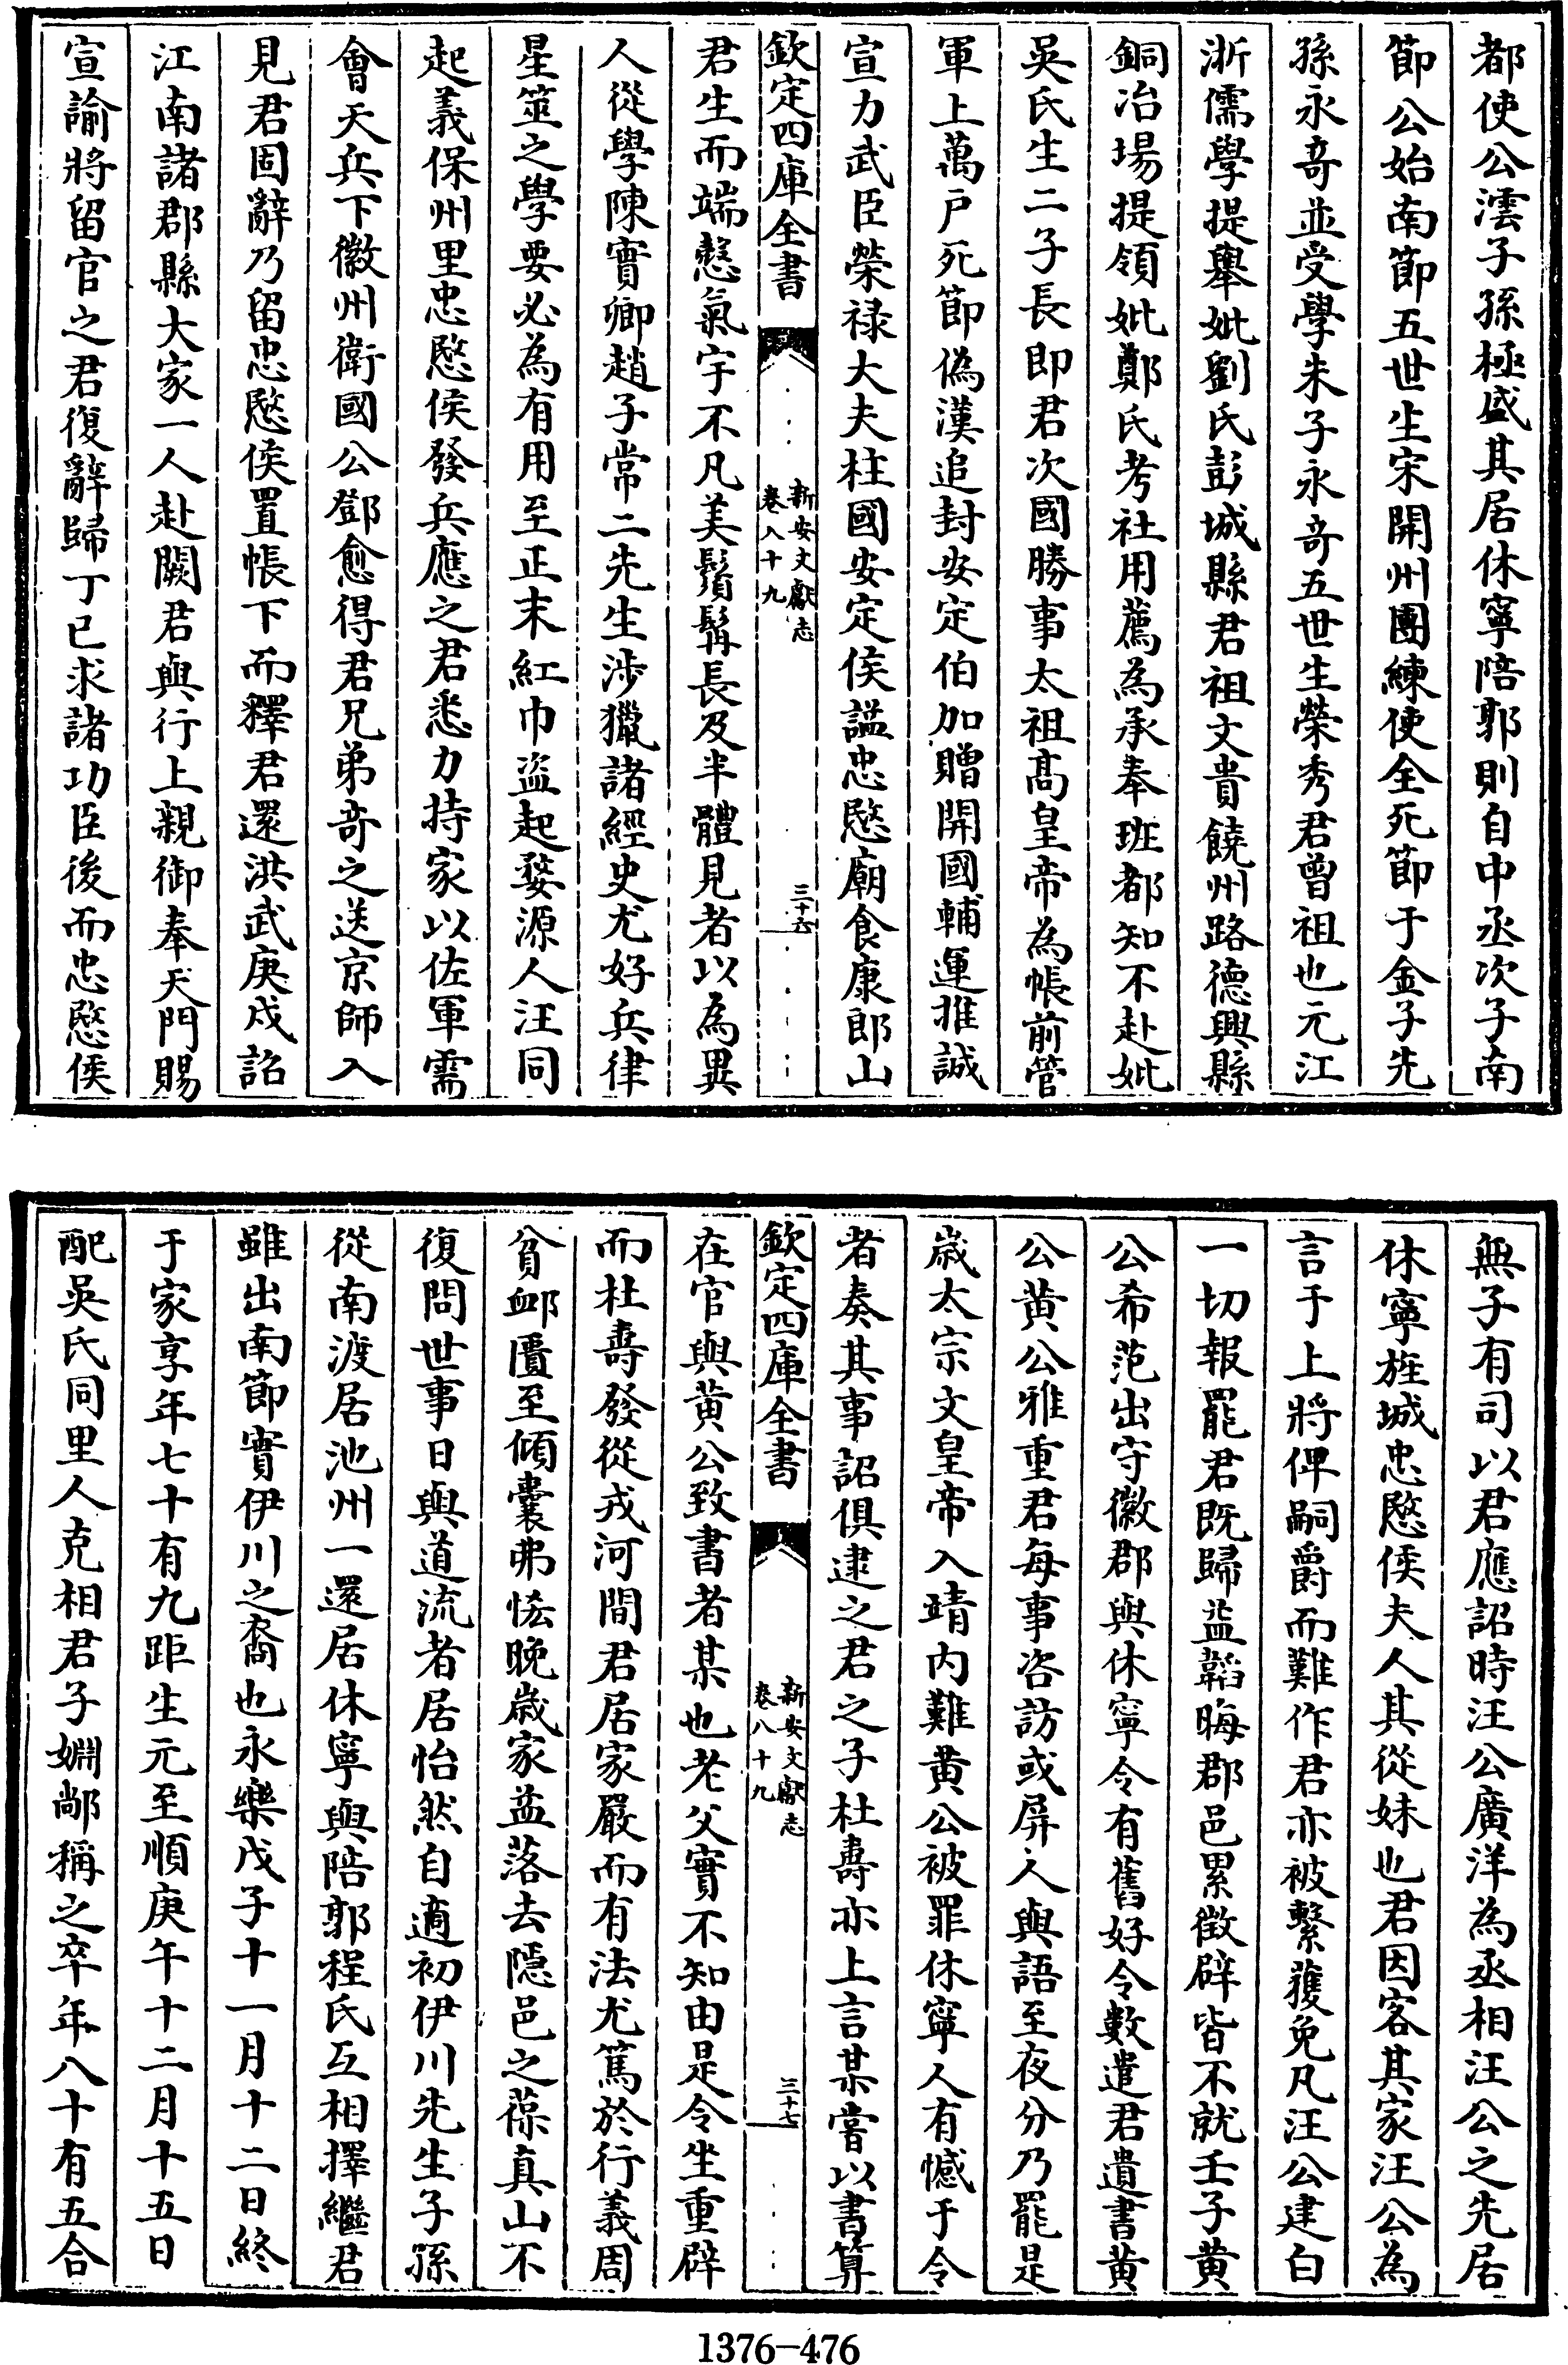 都使公澐子孫極盛其居休寧陪郭則自中丞次子南
節公始南節五世生宋開州團練使全死節于金子先
孫永竒並受學朱子永竒五世生榮秀君曾祖也元江
浙儒學提舉妣劉氏彭城縣君祖文貴饒州路德興縣
銅冶塲提領妣鄭氏考社用薦為承奉班都知不赴妣
吳氏生二子長即君次國勝事太祖髙皇帝為帳前管
軍上萬戸死節偽漢追封安定伯加贈開國輔運推誠
宣力武臣榮祿大夫柱國安定侯諡忠愍廟食康郎山
欽定四庫全書
新安文獻志
卷八十九
三十六
君生而端慤氣宇不凡美鬚髯長及半體見者以為異
人從學陳實卿趙子常二先生涉獵諸經史尤好兵律
星筮之學要必為有用至正末紅巾盜起婺源人汪同
起義保州里忠愍侯發兵應之君悉力持家以佐軍需
會天兵下徽州衛國公鄧愈得君兄弟竒之送京師入
見君固辭乃留忠愍侯置帳下而釋君還洪武庚戍詔
江南諸郡縣大家一人赴闕君與行上親御奉天門賜
宣諭將留官之君復辭歸丁巳求諸功臣後而忠愍侯
無子有司以君應詔時汪公廣洋為丞相汪公之先居
休寧旌城忠愍侯夫人其從妹也君因客其家汪公為
言于上將俾嗣爵而難作君亦被繫蒦免凡汪公建白
一切報罷君既歸益韜晦郡邑累徵辟皆不就壬子黄
公希范出守徽郡與休寧令有舊好令數遣君遺書黄
公黄公雅重君每事咨訪或屏人與語至夜分乃罷是
歲太宗文皇帝入靖内難黄公被罪休寧人有憾于令
者奏其事詔俱逮之君之子杜壽亦上言某嘗以書算
欽定四庫全書
新安文獻志
卷八十九
三十七
在官與黄公致書者某也老父實不知由是令坐重辟
而杜壽發從戎河間君居家嚴而有法尤篤於行義周
貧䘏匱至傾囊弗恡晚歲家益落去隱邑之葆真山不
復問世事日與道流者居怡然自適初伊川先生子孫
從南渡居池州一還居休寧與陪郭程氏互相擇繼君
雖出南節實伊川之裔也永樂戊子十一月十二日終
于家享年七十有九距生元至順庚午十二月十五日
配吳氏同里人克相君子婣鄰稱之卒年八十有五合
1376-476